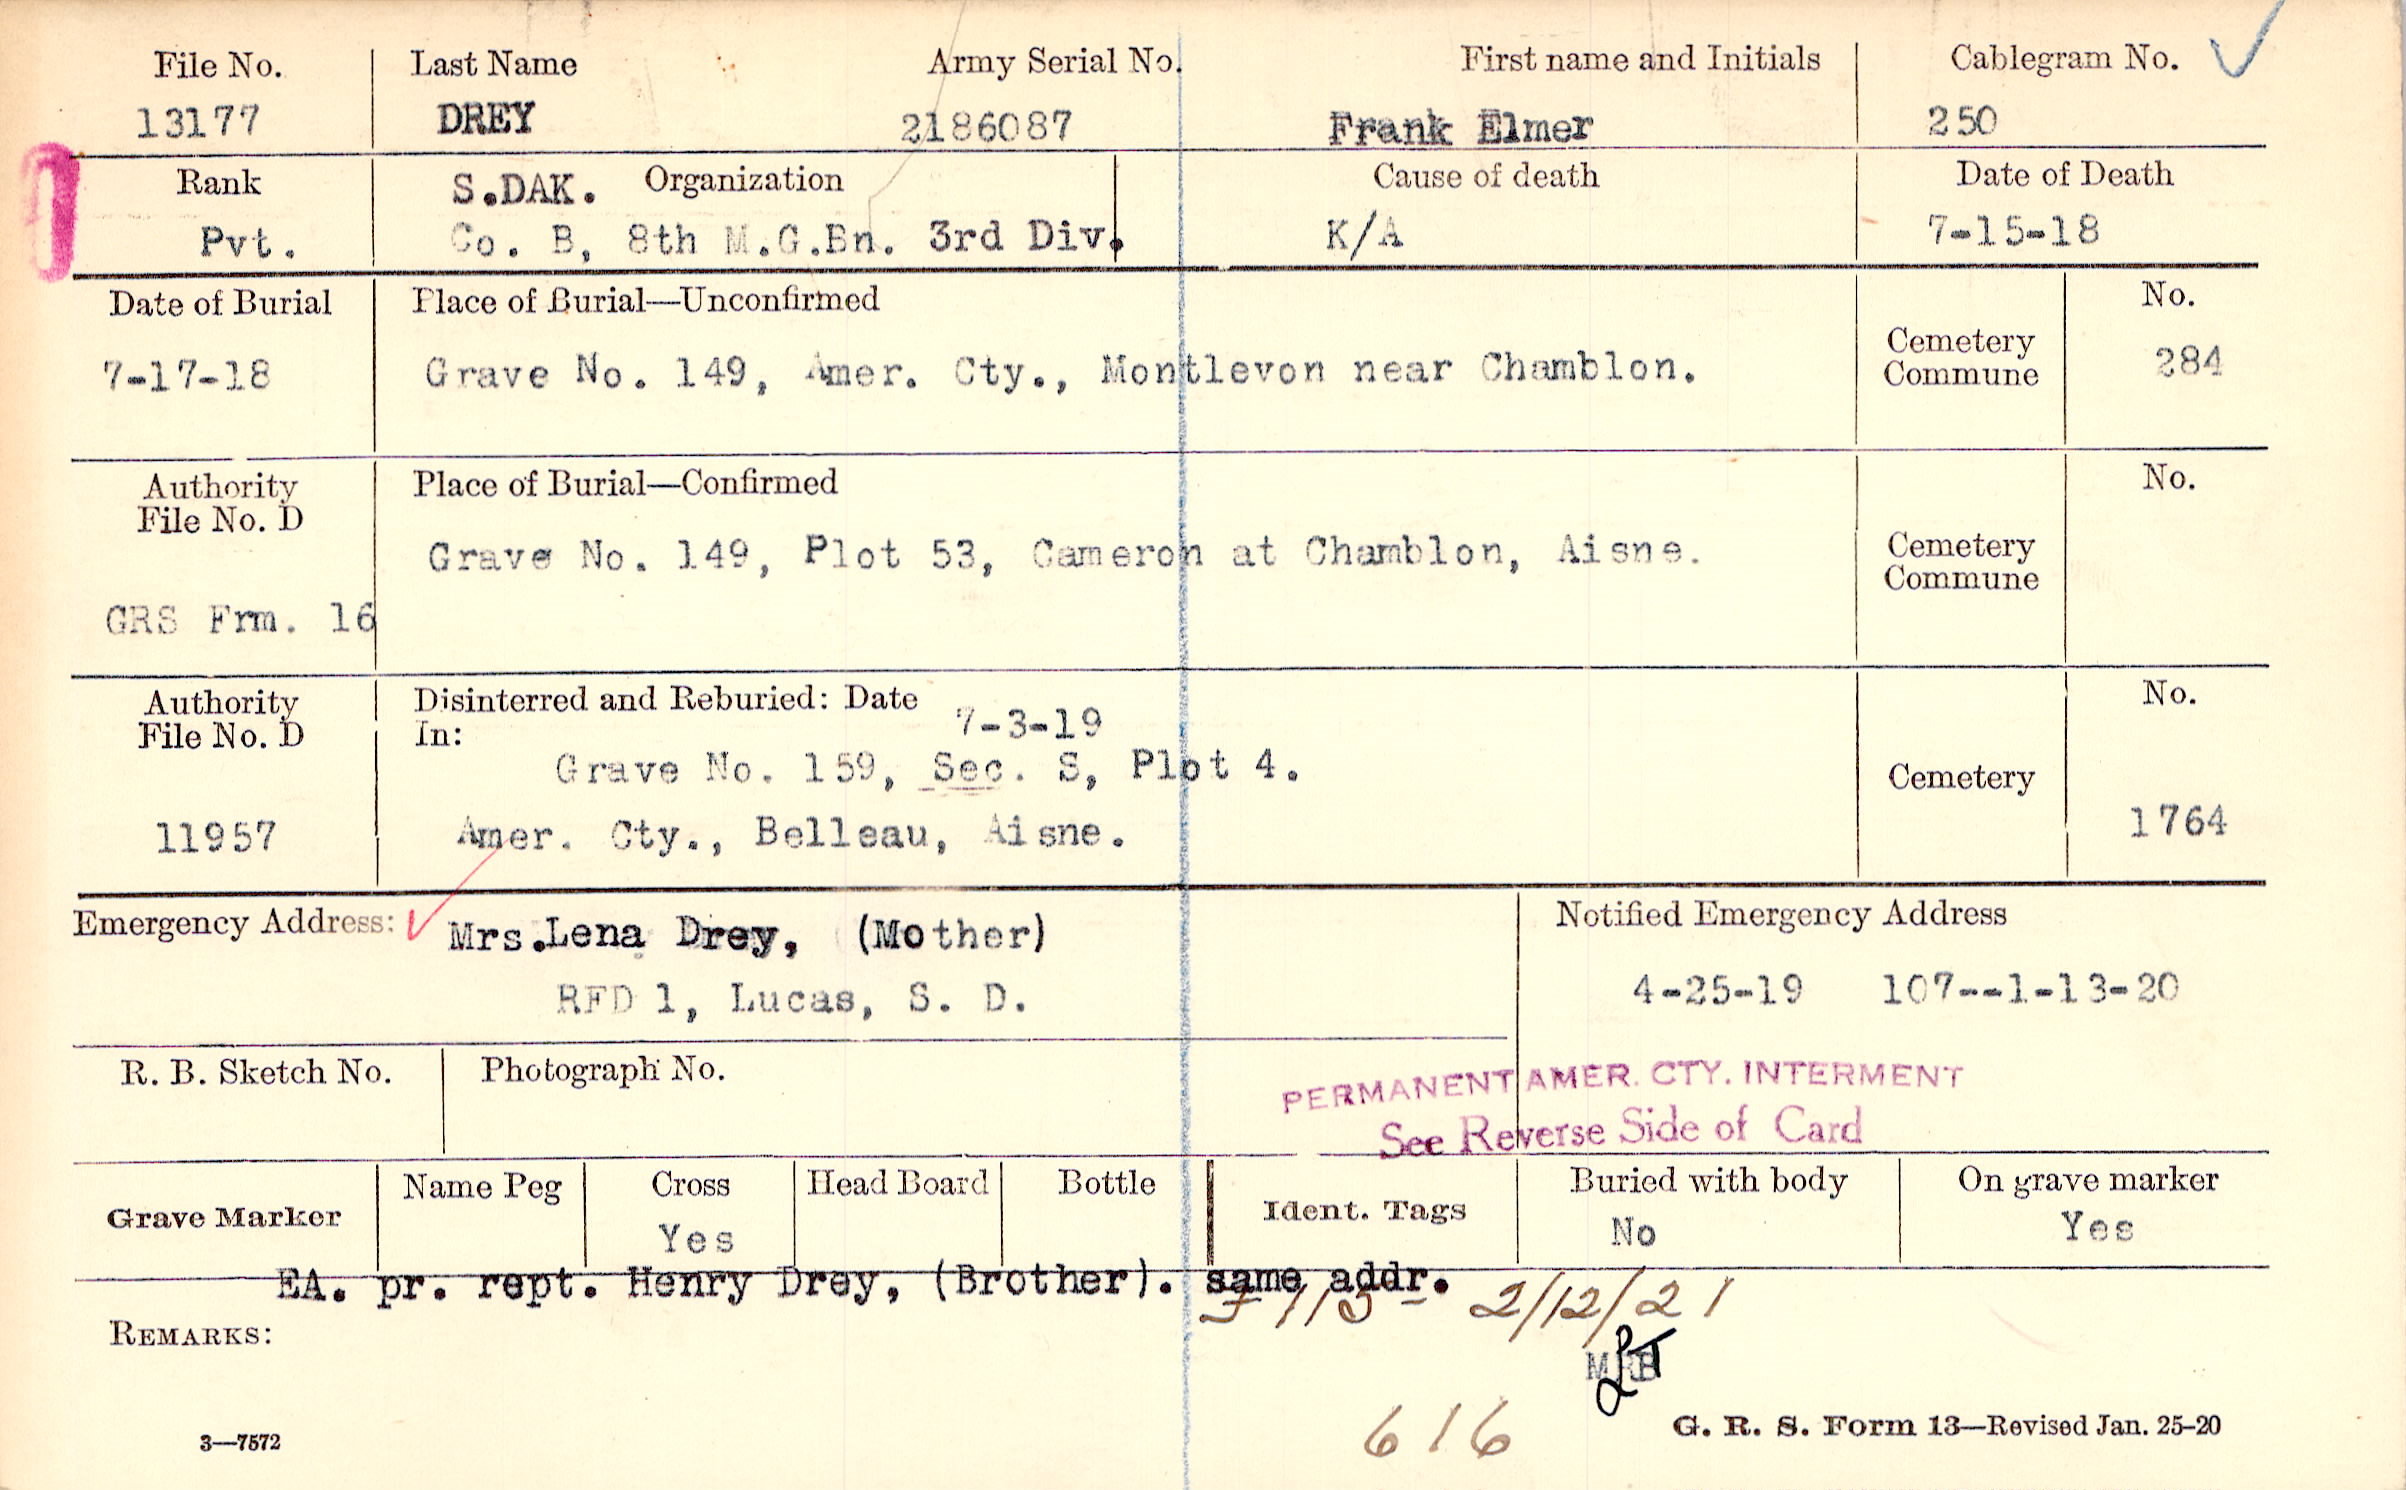 File No. Last Name Army Serial No. First name and Initials Cablegram No.
13177 DREY 2186087 Frank Elmer 250
Rank S.DAK. Organization Cause of death Date of Death
Pvt. Co. B, 8th M.G.Bn. 3rd Div. K/A 7-15-18
Date of Burial Place of Burial—Unconfirmed No.
7-17-18 Grave No. 149, Amer. Cty., Montlevon near Chamblon. Cemetery 284
Commune
Authority Place of Burial—Confirmed No.
File No. D
Grave No. 149, Plot 53, Cameron at Chamblon, Aisne. Cemetery
Commune
GRS Frm. 16
Authority Disinterred and Reburied: Date 7-3-19 No.
File No. D In:
Grave No. 159, Sec. S, Plot 4. Cemetery
11957 Amer. Cty., Belleau, Aisne. 1764
Emergency Address: Mrs.Lena Drey, (Mother) Notified Emergency Address
RFD 1, Lucas, S. D. 4-25-19 107--1-13-20
R. B. Sketch No. Photograph No.
PERMANENT AMER. CTY. INTERMENT
See Reverse Side of Card
Grave Marker Name Peg Cross Head Board Bottle Ident. Tags Buried with body On grave marker
Yes No Yes
EA. pr. rept. Henry Drey, (Brother). same addr.
2/12/21
REMARKS:
616
3—7572 G. R. S. Form 13—Revised Jan. 25-20